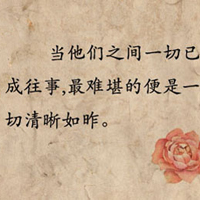 当他们之间一切已
成往事,最难堪的便是一
切清晰如昨。